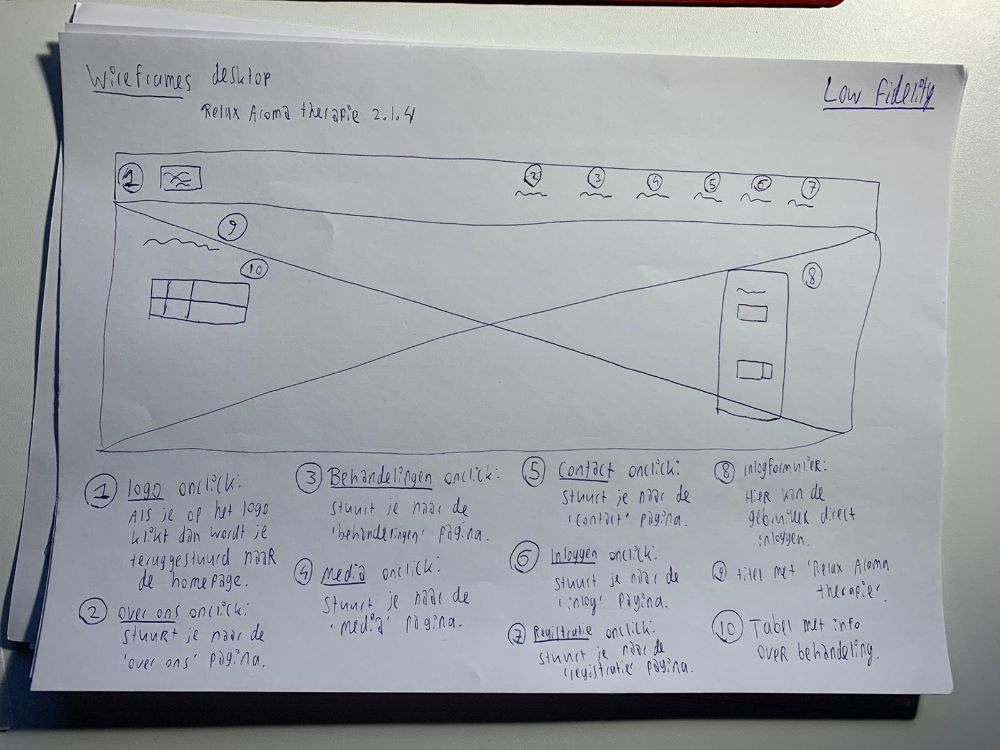 Wireframes desktop
Relax Aroma therapie 2.1.4
Low Fidelity
1
2
3
4
5
6
7
9
10
8
1 logo onclick:
Als je op het logo
klikt dan wordt je
teruggestuurd naar
de homepage.
2 over ons onclick:
stuurt je naar de
'over ons' pagina.
3 Behandelingen onclick:
stuurt je naar de
'behandelingen' pagina.
4 Media onclick:
stuurt je naar de
'media' pagina.
5 Contact onclick:
stuurt je naar de
'contact' pagina.
6 Inloggen onclick:
stuurt je naar de
'inlog' pagina.
7 Registratie onclick:
stuurt je naar de
'registratie' pagina.
8 inlogformulier:
Hier kan de
gebruiker direct
inloggen.
9 titel met 'Relax Aroma
therapie'.
10 Tabel met info
over behandeling.